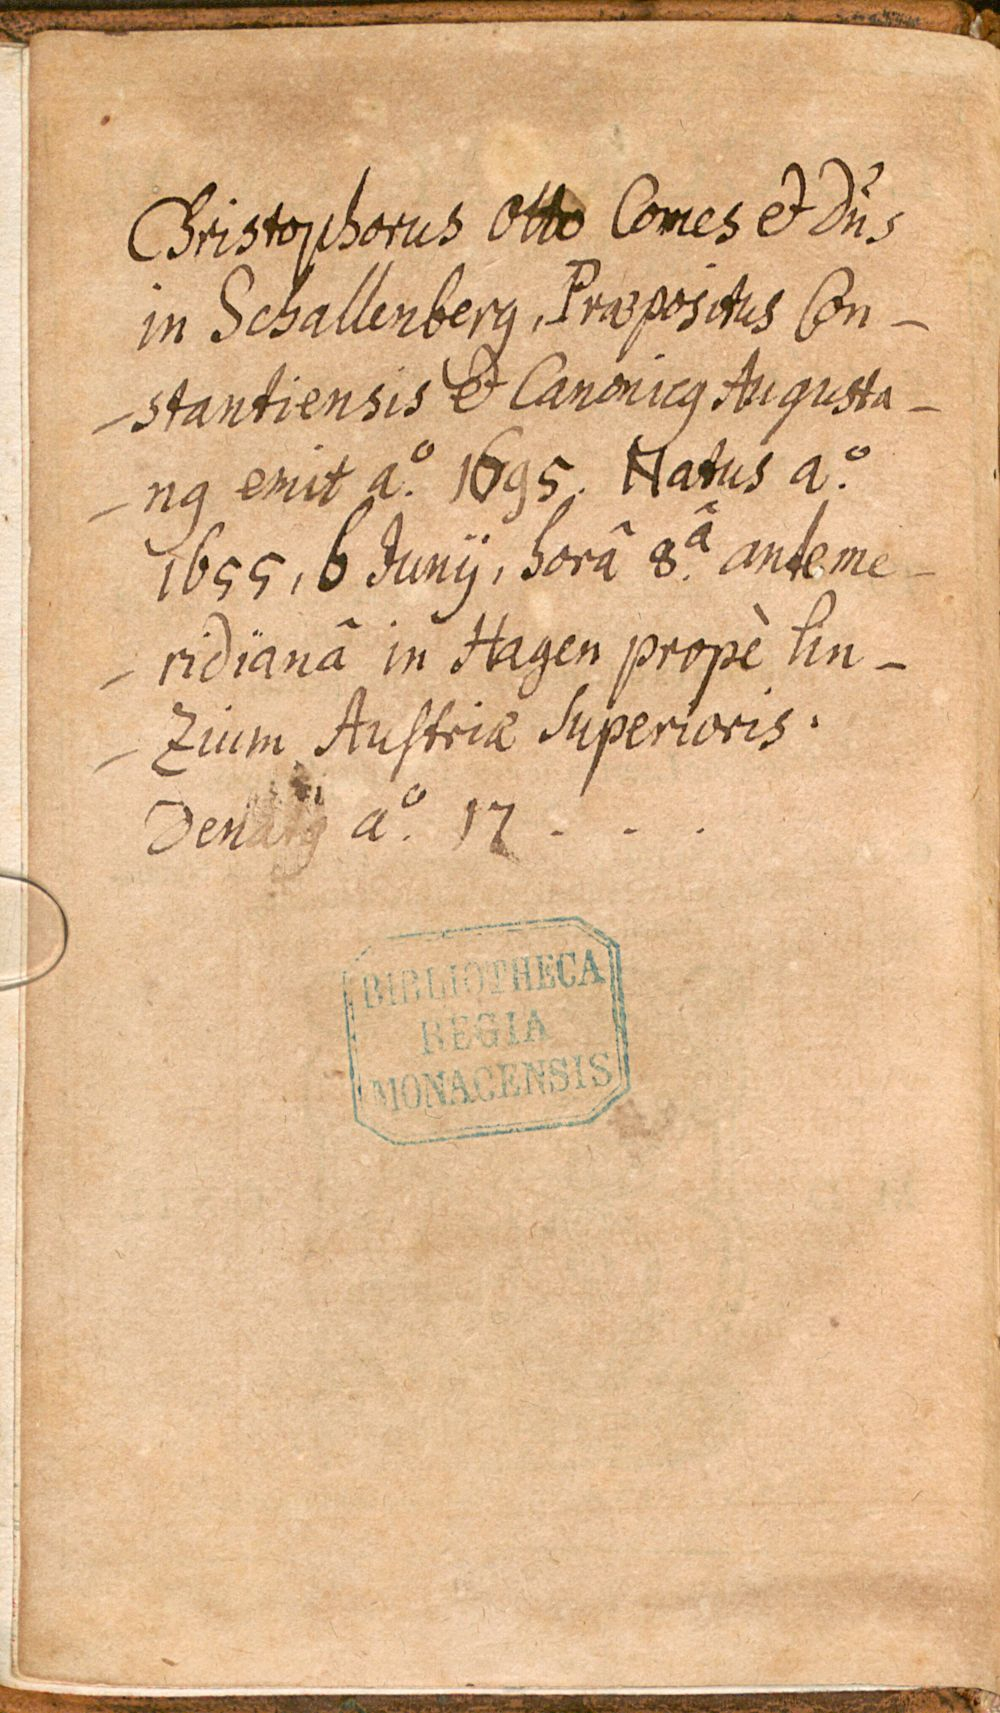 Christophorus Otto Comes et Dn̄s
in Schallenberg, Præpositus Con-
-stantiensis et Canonicꝯ Augusta-
-nꝯ emit aº. 1695. Natus aº.
1655, 6 Junÿ, horâ 8.â anteme-
-ridianâ in Hagen propè lin-
-Zium Austriæ Superioris.
aº. 17 . . .
BIBLIOTHECA
REGIA
MONACENSIS